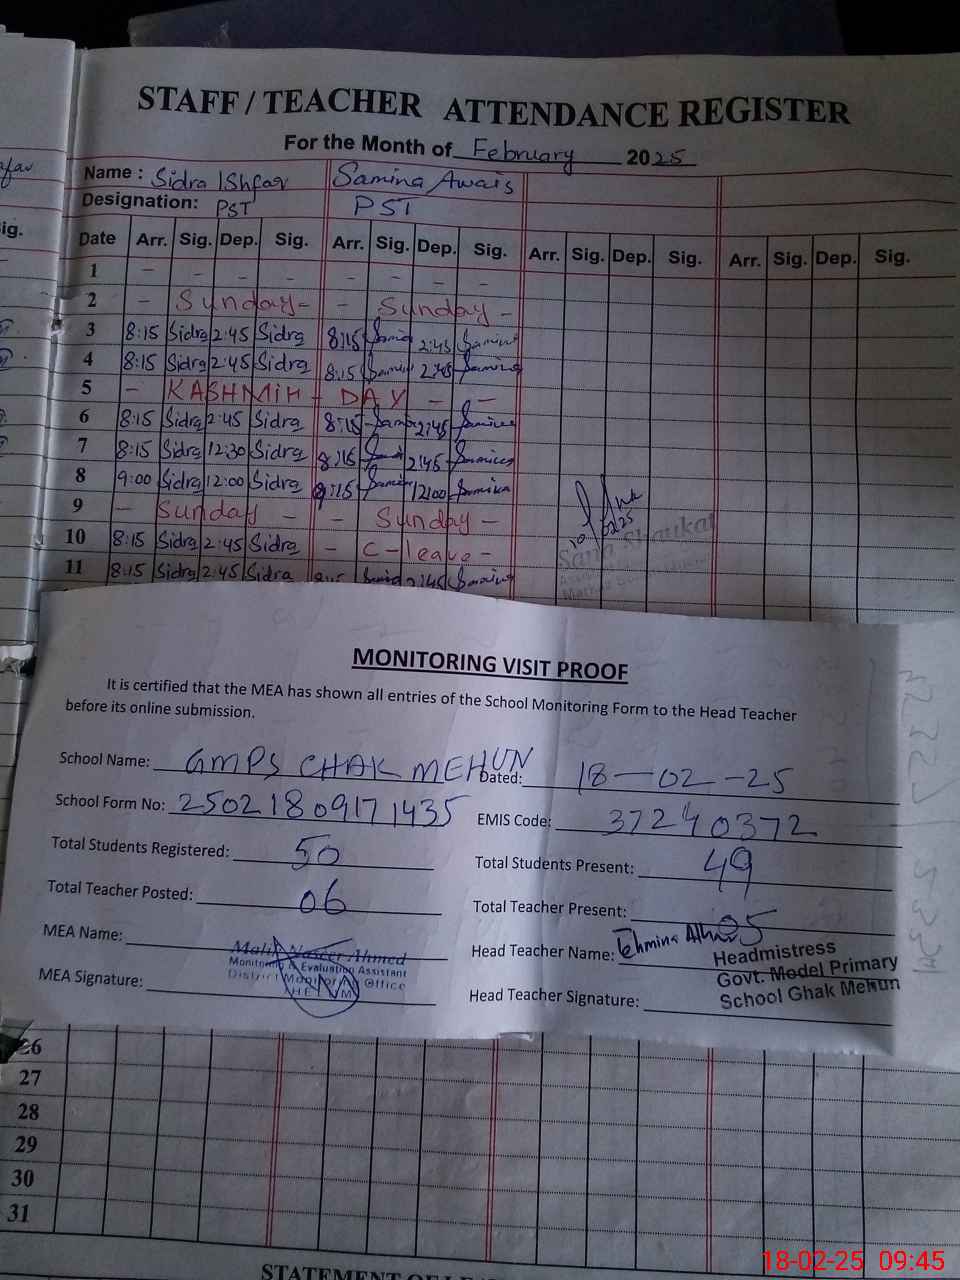 STAFF / TEACHER ATTENDANCE REGISTER
For the Month of February 2025
Name : Sidra IShfar Samina Awais
Designation: PST PST
ig.
Date Arr. Sig. Dep. Sig. Arr. Sig. Dep. Sig. Arr. Sig. Dep. Sig. Arr. Sig. Dep. Sig.
1 - - - - - - - -
2 - Sunday - - Sunday -
3 8:15 Sidra 2:45 Sidra 8:15 Samina 2:45 Samina
4 8:15 Sidra 2:45 Sidra 8:15 Samina 2:45 Samina
5 - KASHMIR - DAY - -
6 8:15 Sidra 2:45 Sidra 8:15 Samina 2:45 Samina
7 8:15 Sidra 12:30 Sidra 8:15 2:45 Samina
8 9:00 Sidra 12:00 Sidra 9:15 Samina 12:00 Samina
9 - Sunday - - Sunday -
10 8:15 Sidra 2:45 Sidra - C-leave -
10/02/25
Sana Shaukat
11 8:15 Sidra 2:45 Sidra 2:45 Samina
MONITORING VISIT PROOF
It is certified that the MEA has shown all entries of the School Monitoring Form to the Head Teacher
before its online submission.
School Name: GMPS CHAK MEHUN Dated: 18-02-25
School Form No: 25021809171435 EMIS Code: 37240372
Total Students Registered: 50 Total Students Present: 49
Total Teacher Posted: 06 Total Teacher Present: 05
MEA Name: Malik Naseer Ahmed Head Teacher Name: Tehmina Athar
Monitoring & Evaluation Assistant
District Monitoring Office
Headmistress
Govt. Model Primary
School Ghak Mehun
MEA Signature: Head Teacher Signature:
26
27
28
29
30
31
18-02-25 09:45